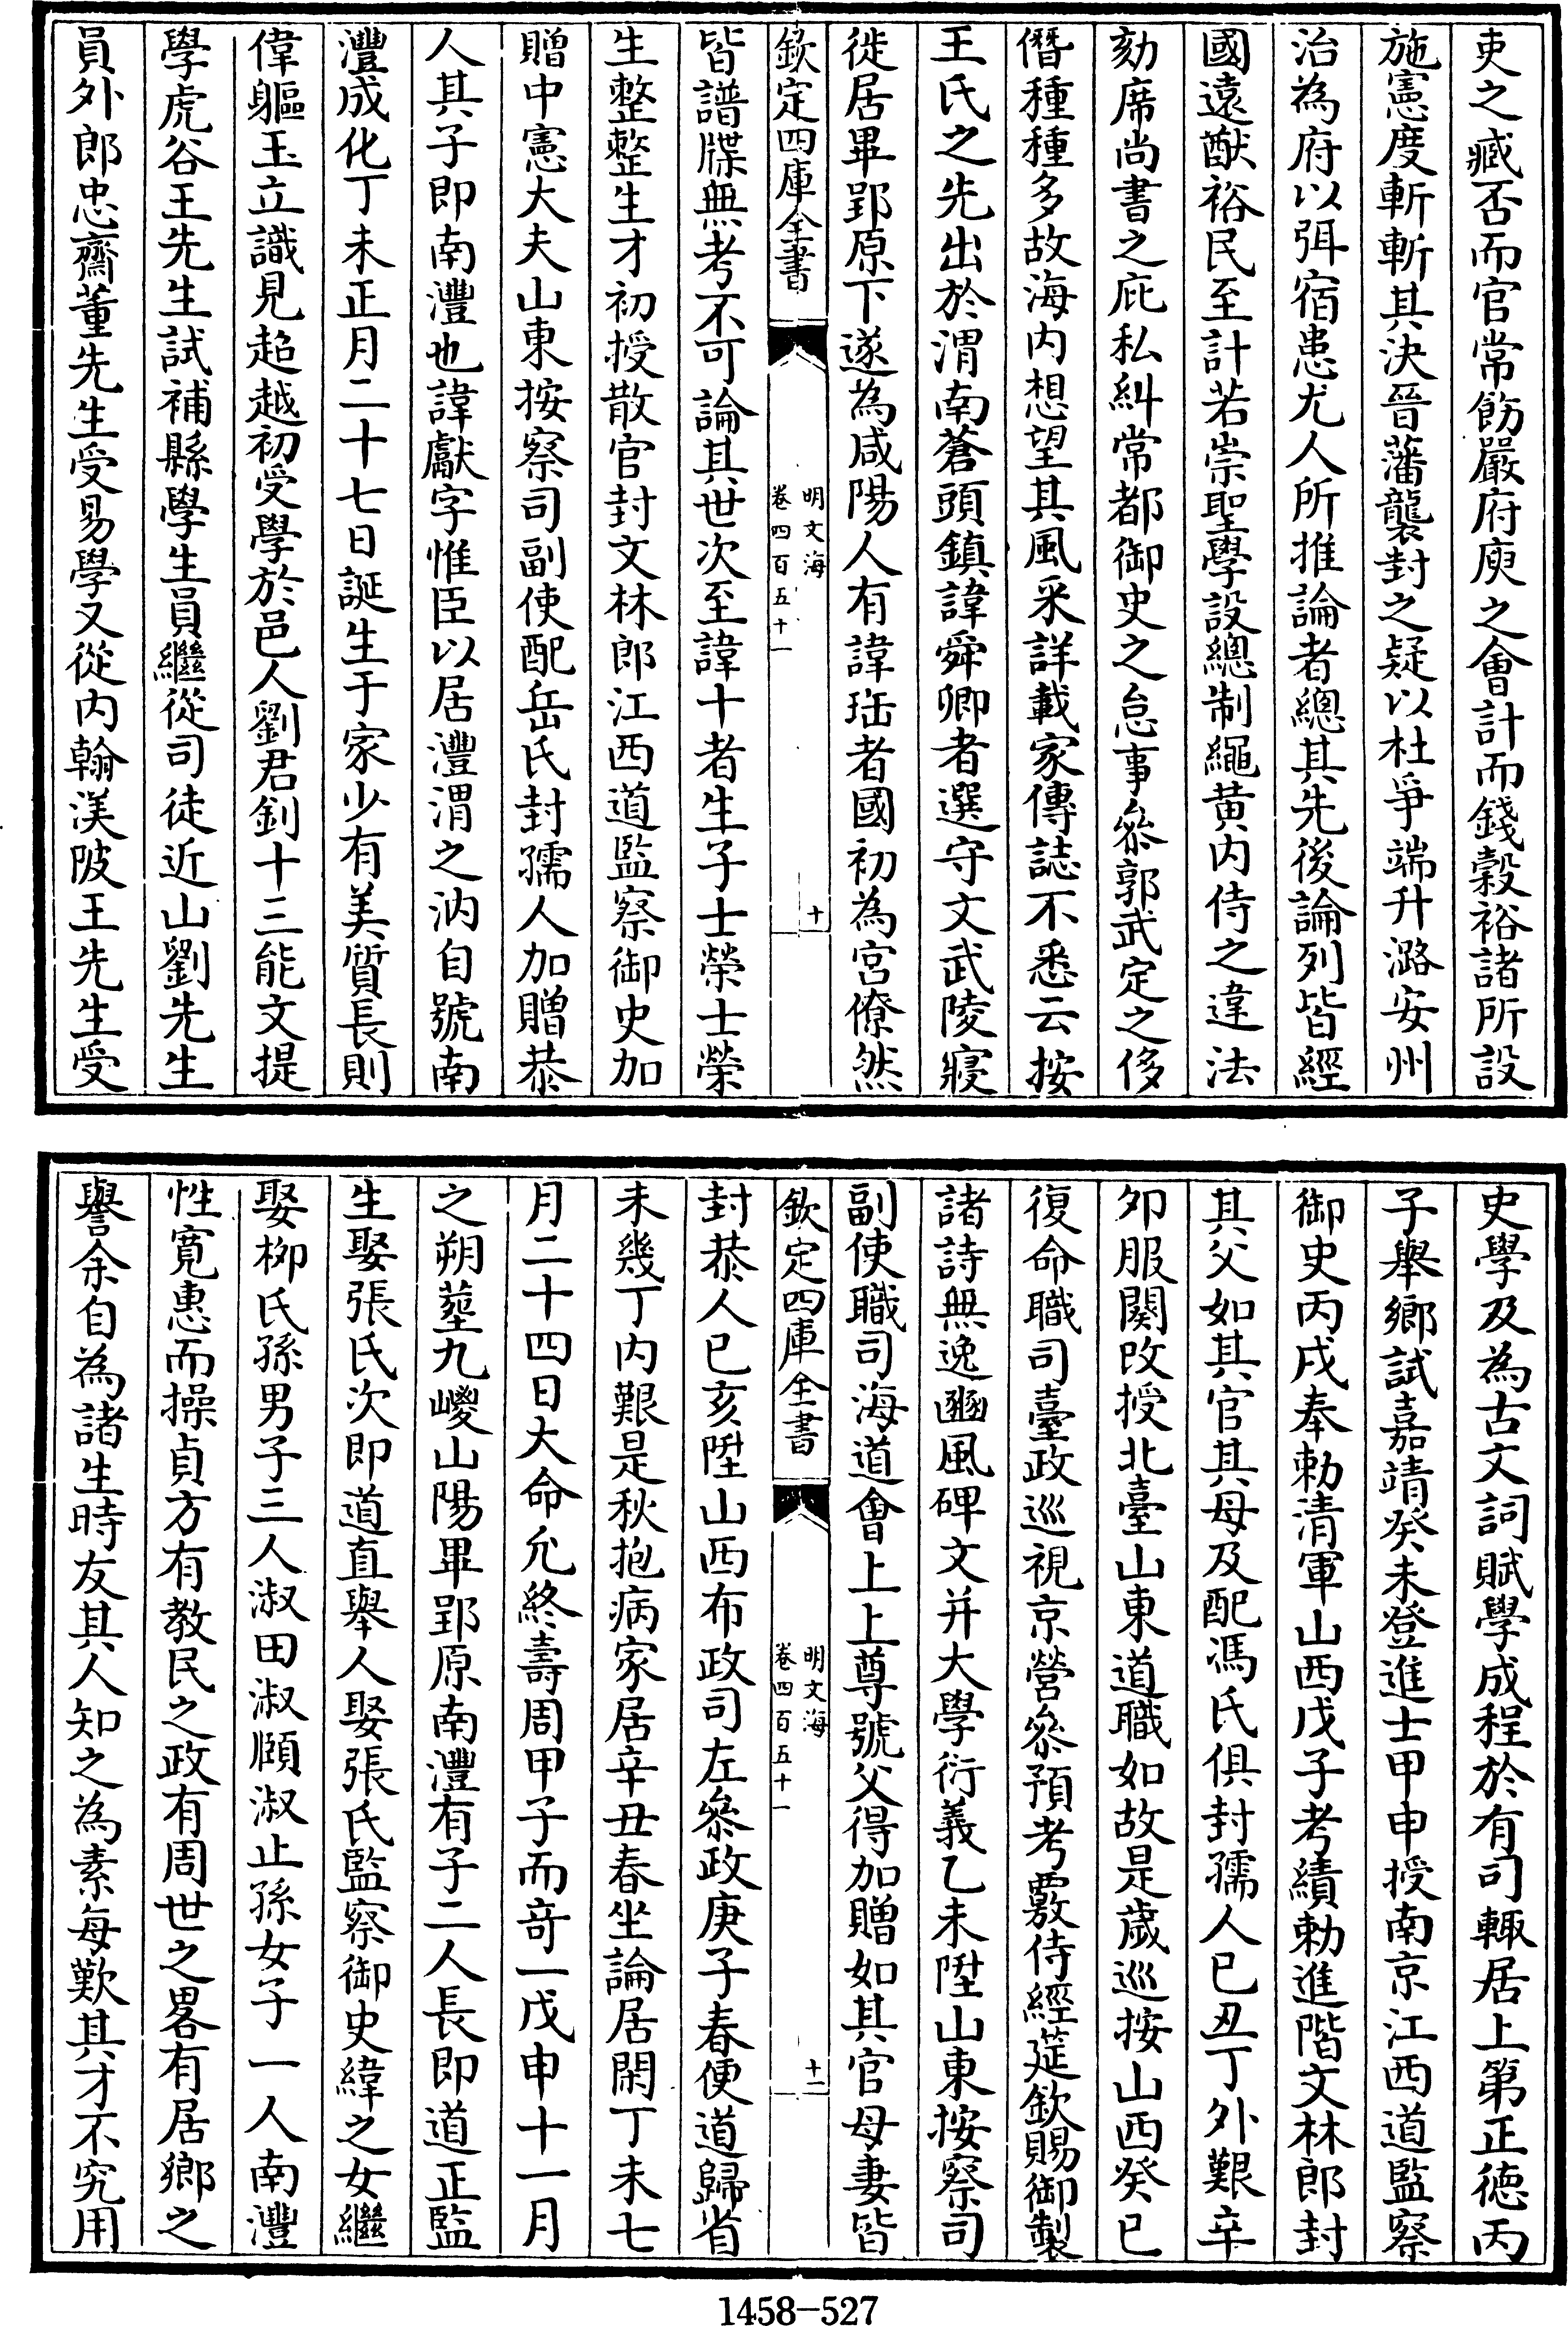 吏之臧否而官常飭嚴府庾之會計而錢穀裕諸所設
施憲度斬斬其決晉藩襲封之疑以杜爭端升潞安州
治為府以弭宿患尤人所推論者總其先後論列皆經
國遠猷裕民至計若崇聖學設總制繩黄内侍之違法
劾席尚書之庇私糾常都御史之怠事叅郭武定之侈
僭種種多故海内想望其風采詳載家傳誌不悉云按
王氏之先出於渭南蒼頭鎮諱舜卿者選守文武陵寢
徙居畢郢原下遂為咸陽人有諱珤者國初為宫僚然
欽定四庫全書
明文海
卷四百五十一
十
皆譜牒無考不可論其世次至諱十者生子士榮士榮
生整整生才初授散官封文林郎江西道監察御史加
贈中憲大夫山東按察司副使配岳氏封孺人加贈恭
人其子即南灃也諱獻字惟臣以居灃渭之汭自號南
灃成化丁未正月二十七日誕生于家少有美質長則
偉軀玉立識見超越初受學於邑人劉君釗十三能文提
學虎谷王先生試補縣學生員繼從司徒近山劉先生
員外郎忠齋董先生受易學又從内翰渼陂王先生受
史學及為古文詞賦學成程於有司輙居上第正徳丙
子舉鄉試嘉靖癸未登進士甲申授南京江西道監察
御史丙戌奉勅清軍山西戊子考績勅進階文林郎封
其父如其官其母及配馮氏俱封孺人已丑丁外艱辛
夘服闋改授北臺山東道職如故是歳巡按山西癸已
復命職司臺政巡視京營叅預考覈侍經筵欽賜御製
諸詩無逸豳風碑文并大學衍義乙未陞山東按察司
副使職司海道會上上尊號父得加贈如其官母妻皆
欽定四庫全書
明文海
卷四百五十一
十一
封恭人已亥陞山西布政司左叅政庚子春便道歸省
未幾丁内艱是秋抱病家居辛丑春坐論居閑丁未七
月二十四日大命允終壽周甲子而竒一戊申十一月
之朔塟九嵕山陽畢郢原南灃有子二人長即道正監
生娶張氏次即道直舉人娶張氏監察御史緯之女繼
娶栁氏孫男子三人淑田淑頤淑止孫女子一人南灃
性寛惠而操貞方有教民之政有周世之畧有居鄉之
譽余自為諸生時友其人知之為素每歎其才不究用
1458-527